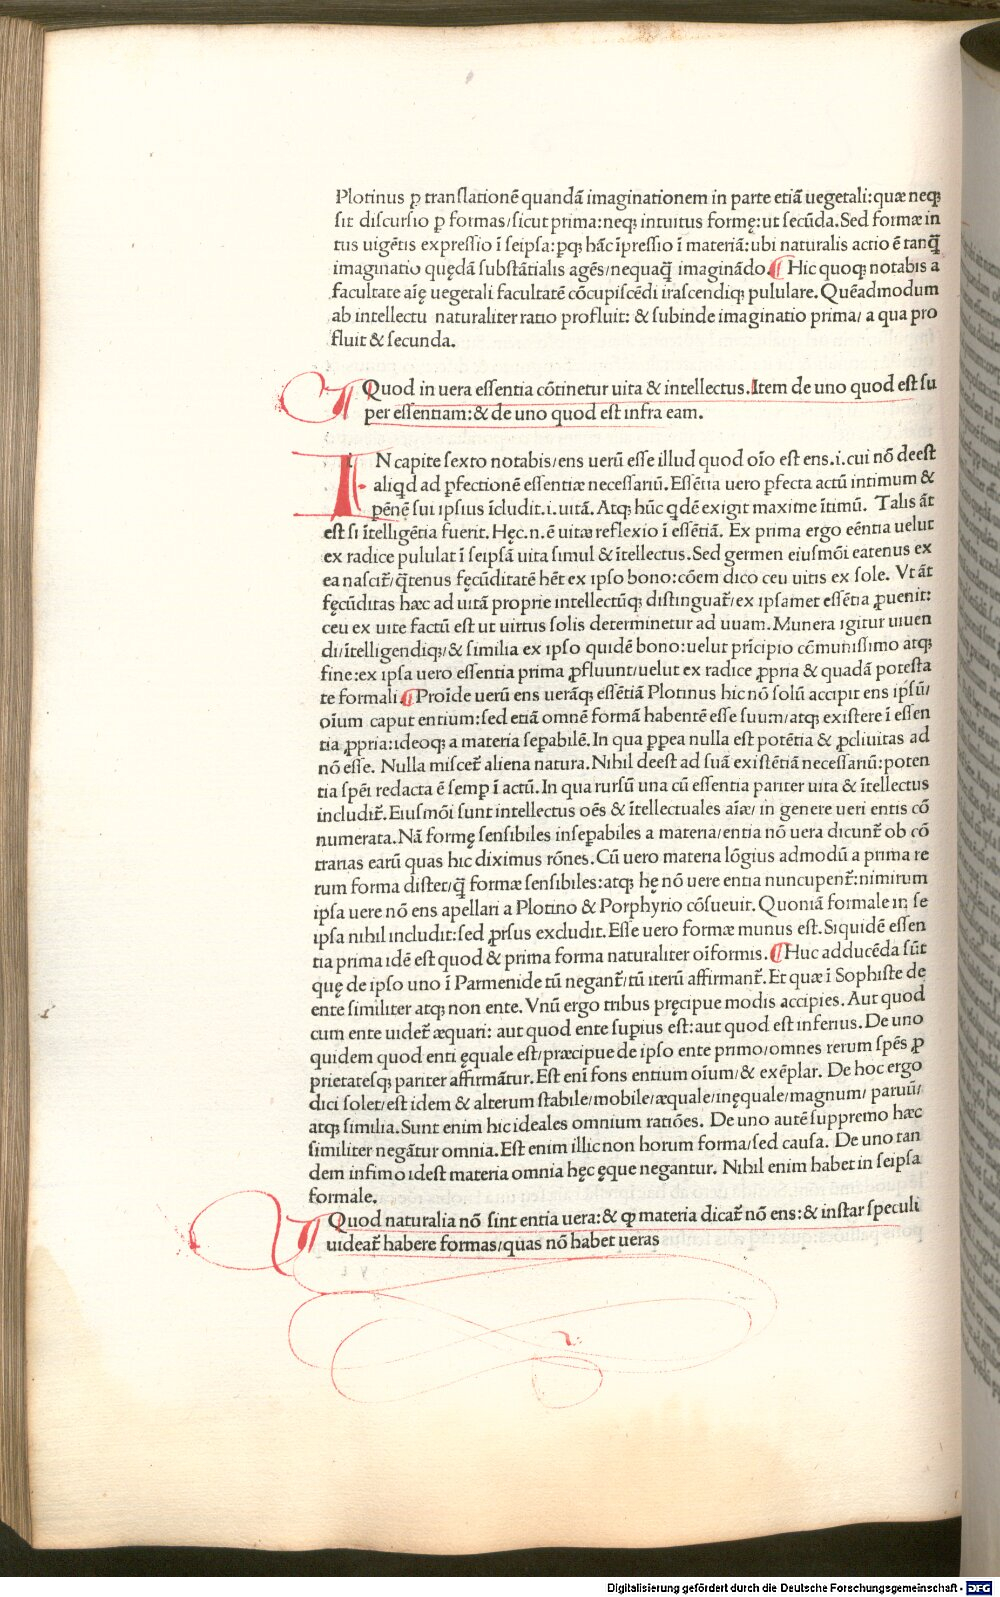 Plotinus ꝑ translationē quandā imaginationem in parte etiā uegetali:quæ neqꝫ
sit discursio ꝑ formas/sicut prima:neqꝫ intuitus formę:ut secūda.Sed formæ in
tus uigētis expressio ī seipsa:ꝑqꝫ hāc īpressio ī materiā:ubi naturalis actio ē tanq̄
imaginatio quędā substātialis agēs/nequaq̄ imaginādo.¶ Hic quoqꝫ notabis a
facultate aīę uegetali facultatē cōcupiscēdi irascendiqꝫ pululare.Quēadmodum
ab intellectu naturaliter ratio profluit: & subinde imaginatio prima/ a qua pro
fluit & secunda.
¶ Quod in uera essentia cōtinetur uita & intellectus.Item de uno quod est su
per essentiam:& de uno quod est infra eam.
IN capite sexto notabis/ens uerū esse illud quod oīo est ens.i.cui nō deest
aliqd ad ꝑfectionē essentiæ necessariū.Essētia uero ꝑfecta actū intimum &
pēnē sui ipsius īcludit.i.uitā. Atqꝫ hūc qdē exigit maxime ītimū. Talis āt
est si ītelligētia fuerit.Hęc.n.ē uitæ reflexio ī essētiā. Ex prima ergo eēntia uelut
ex radice pululat ī seipsā uita simul & ītellectus.Sed germen eiusmōi eatenus ex
ea nascit̄/q̄tenus fęcūditatē hēt ex ipso bono:cōem dico ceu uitis ex sole. Vt āt
fęcūditas hæc ad uitā proprie intellectūqꝫ distinguat̄/ex ipsamet essētia ꝓuenit:
ceu ex uite factū est ut uirtus solis determinetur ad uuam.Munera igitur uiuen
di/ītelligendiqꝫ/& similia ex ipso quidē bono:uelut prīcipio cōmunissimo atqꝫ
fine:ex ipsa uero essentia prima ꝓfluunt/uelut ex radice ꝓpria & quadā potesta
te formali.¶ Proīde uerū ens uerāqꝫ essētiā Plotinus hic nō solū accipit ens ipsū/
oīum caput entium:sed etiā omnē formā habentē esse suum/atqꝫ existere ī essen
tia ꝓpria:ideoqꝫ a materia seꝑabilē.In qua ꝓpea nulla est potētia & ꝓcliuitas ad
nō esse. Nulla miscet̄ aliena natura.Nihil deest ad suā existētiā necessariū:poten
tia spēi redacta ē semꝑ ī actū.In qua rursū una cū essentia pariter uita & ītellectus
includit̄.Eiusmōi sunt intellectus oēs & ītellectuales aīæ/ in genere ueri entis cō
numerata.Nā formę sensibiles inseꝑabiles a materia/entia nō uera dicunt̄ ob cō
trarias earū quas hic diximus rōnes.Cū uero materia lōgius admodū a prima re
rum forma distet/q̄ formæ sensibiles:atqꝫ hę nō uere entia nuncupent̄:nimirum
ipsa uere nō ens apellari a Plotino & Porphyrio cōsueuit.Quoniā formale in se
ipsa nihil includit:sed ꝓrsus excludit.Esse uero formæ munus est.Siquidē essen
tia prima idē est quod & prima forma naturaliter oīformis.¶ Huc adducēda sūt
quę de ipso uno ī Parmenide tū negant̄/tū iterū affirmant̄.Et quæ ī Sophiste de
ente similiter atqꝫ non ente.Vnū ergo tribus pręcipue modis accipies.Aut quod
cum ente uidet̄ æquari: aut quod ente suꝑius est:aut quod est inferius.De uno
quidem quod enti ęquale est/præcipue de ipso ente primo/omnes rerum spēs ꝓ
prietatesqꝫ pariter affirmātur.Est enī fons entium oīum/& exēplar. De hoc ergo
dici solet/est idem & alterum stabile/mobile/æquale/inęquale/magnum/ paruū/
atqꝫ similia.Sunt enim hic ideales omnium ratiōes. De uno autē suppremo hæc
similiter negātur omnia.Est enim illic non horum forma/sed causa. De uno tan
dem infimo idest materia omnia hęc ęque negantur. Nihil enim habet in seipsa
formale.
¶ Quod naturalia nō sint entia uera:& ꝙ materia dicat̄ nō ens:& instar speculi
uideat̄ habere formas/quas nō habet ueras
Digitalisierung gefördert durch die Deutsche Forschungsgemeinschaft - DFG